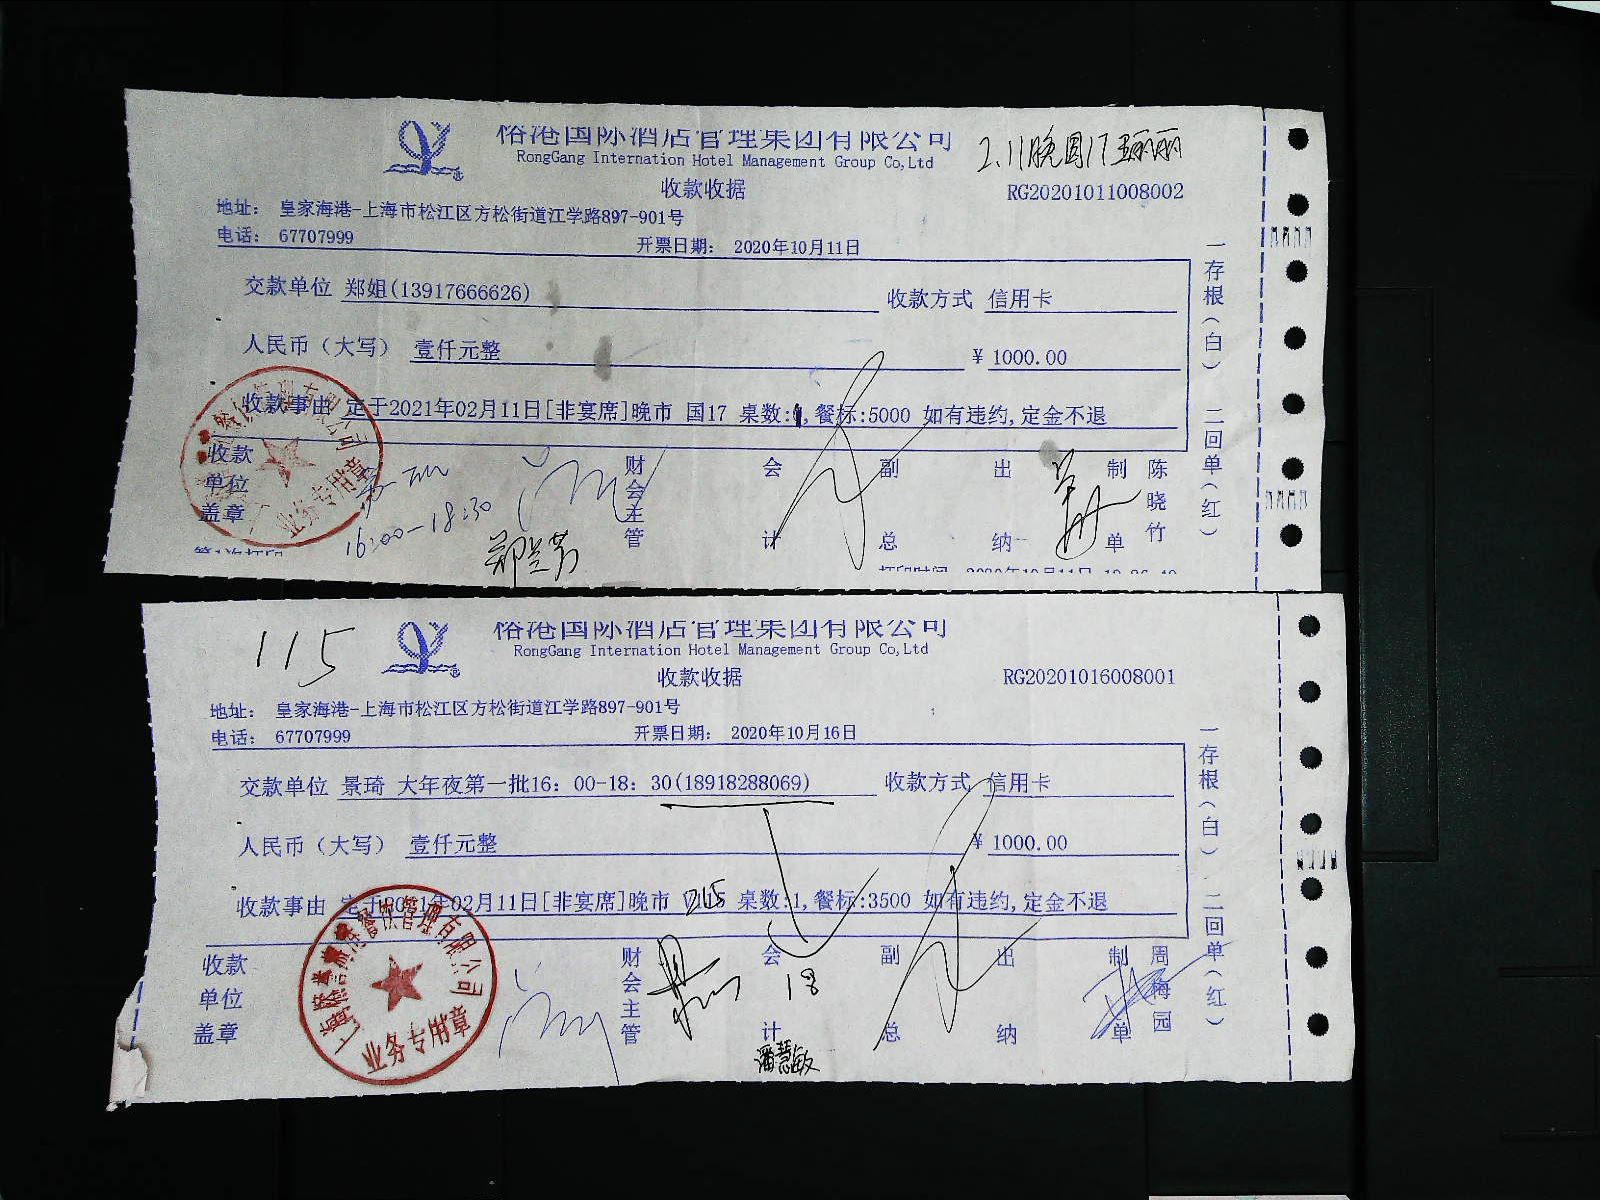 裕港国际酒店管理集团有限公司
RongGang Internation Hotel Management Group Co,Ltd
2.11晚国17
收款收据
RG20201011008002
地址： 皇家海港-上海市松江区方松街道江学路897-901号
电话： 67707999
开票日期： 2020年10月11日
交款单位 郑姐(13917666626)
收款方式 信用卡
人民币（大写） 壹仟元整
¥ 1000.00
收款事由 定于2021年02月11日[非宴席]晚市 国17 桌数:1,餐标:5000 如有违约,定金不退
收款单位盖章
财会主管
会计
副总
出纳
制单
陈晓竹
一存根（白） 二回单（红）
业务专用章
16:00-18:30
郑兰芳
裕港国际酒店管理集团有限公司
RongGang Internation Hotel Management Group Co,Ltd
115
收款收据
RG20201016008001
地址： 皇家海港-上海市松江区方松街道江学路897-901号
电话： 67707999
开票日期： 2020年10月16日
交款单位 景琦 大年夜第一批16：00-18：30(18918288069)
收款方式 信用卡
人民币（大写） 壹仟元整
¥ 1000.00
收款事由 定于2021年02月11日[非宴席]晚市 桌数:1,餐标:3500 如有违约,定金不退
收款单位盖章
财会主管
会计
副总
出纳
制单
周梅园
一存根（白） 二回单（红）
业务专用章
18
潘慧敏